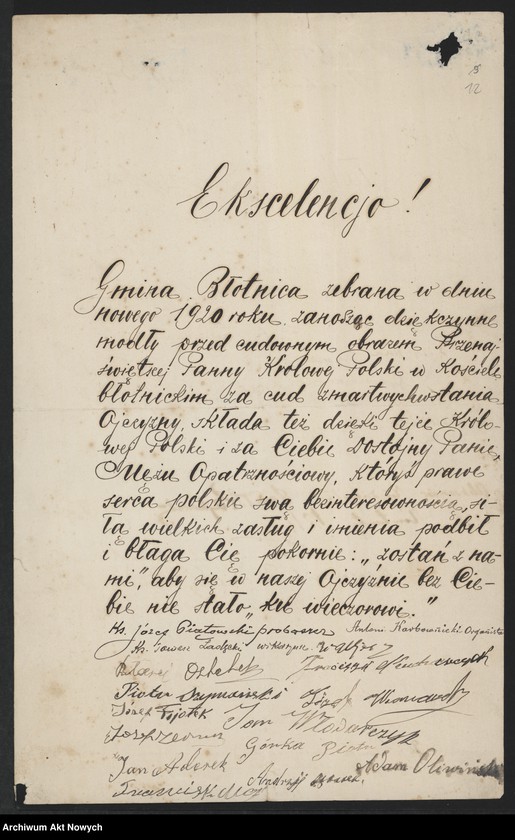 12
Ekscelencjo!
Gmina Błotnica zebrana w dniu
nowego 1920 roku zanosząc dziękczynne
modły przed cudownym obrazem Przenaj-
świętszej Panny Królowej Polski w Kościele
błotnickim za cud zmartwychwstania
Ojczyzny, składa też dzięki tejże Królo-
wej Polski i za Ciebie Dostojny Panie,
Mężu Opatrznościowy, któryś prawe
serca polskie swą bezinteresownością, si-
łą wielkich zasług i imienia podbił
i błaga Cię pokornie: „zostań z na-
mi", aby się w naszej Ojczyźnie bez Cie-
bie nie stało „ku wieczorowi."
Ks. Józef Piatowski proboszcz Antoni Karbownicki Organista
Ks. Wikaryusz
Franciszek
Piotr Szymański Józef
Józef Fijołek Jan Włodarczyk
Józef Górka
Jan Aderek Adam Oliwiński
Franciszek Andrzej
Archiwum Akt Nowych